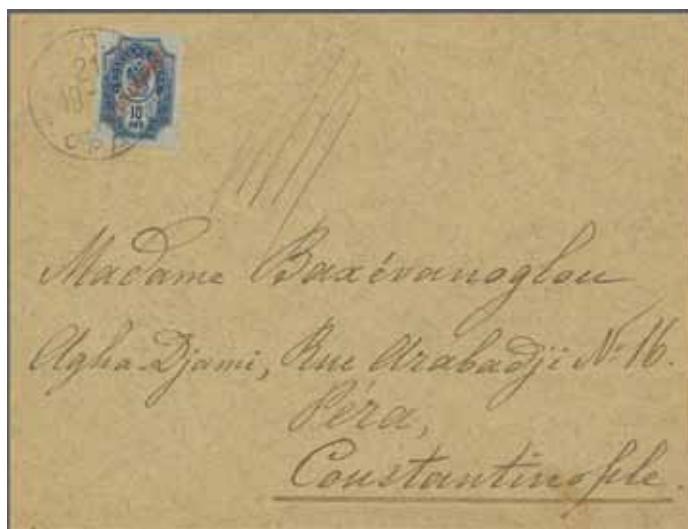 21
10
Madame Baxévanoglou
Agha-Djami, Rue Arabadji No 16.
Péra,
Constantinople.